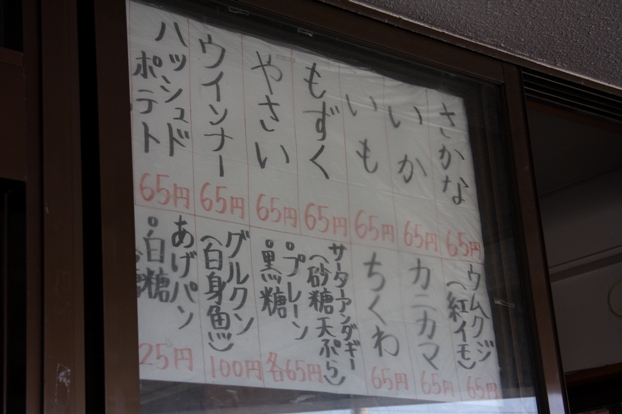 さかな
65円
いか
65円
いも
65円
もずく
65円
やさい
65円
ウインナー
65円
ハッシュド
ポテト
65円
ウムクジ
(紅イモ)
65円
カニカマ
65円
ちくわ
65円
サーターアンダギー
(砂糖天ぷら)
・プレーン
・黒糖
各65円
グルクン
(白身魚)
100円
あげパン
・白糖
25円